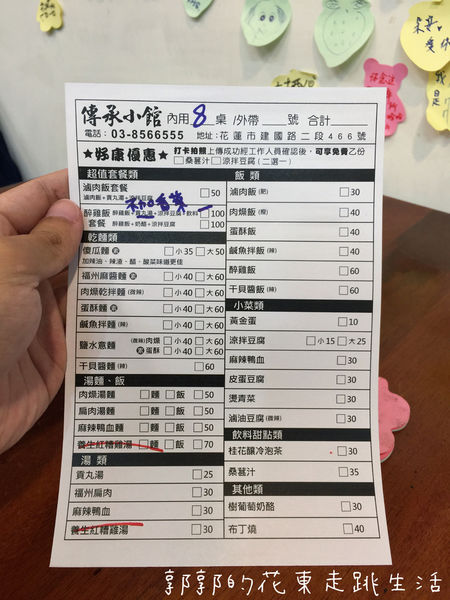 傳承小館 內用 8 桌/外帶____號 合計____
電話：03-8566555 地址：花蓮市建國路二段466號
★好康優惠★ 打卡拍照上傳成功經工作人員確認後，可享免費乙份
□桑葚汁□涼拌豆腐(二選一)
超值套餐類
滷肉飯套餐 □50
滷肉飯+貢丸湯+涼拌豆腐
醉雞飯 醉雞飯+貢丸湯+涼拌豆腐+飲料 □100
套餐 醉雞飯+奶酪+涼拌豆腐 □100
乾麵類
傻瓜麵 □小35 □大50
加辣油、辣渣、醋、酸菜味道更佳
福州麻醬麵 □小40 □大60
肉燥乾拌麵(微辣) □小40 □大60
蛋酥麵 □小40 □大60
鹹魚拌麵(辣) □小40 □大60
鹽水意麵 (微辣)肉燥 □小40 □大60
蛋酥 □小40 □大60
干貝醬麵(辣) □60
湯麵、飯
肉燥湯麵 □麵 □飯 □50
扁肉湯麵 □麵 □飯 □50
麻辣鴨血麵 □麵 □飯 □50
養生紅糟雞湯 □麵 □飯 □70
湯類
貢丸湯 □25
福州扁肉 □30
麻辣鴨血 □30
養生紅糟雞湯 □30
飯類
滷肉飯(肥) □30
肉燥飯(瘦) □30
蛋酥飯 □30
鹹魚拌飯(辣) □30
醉雞飯 □60
干貝醬飯(辣) □60
小菜類
黃金蛋 □10
涼拌豆腐 □小15 □大25
麻辣鴨血 □30
皮蛋豆腐 □30
燙青菜 □30
滷油豆腐(微辣) □30
飲料甜點類
桂花釀冷泡茶 □30
桑葚汁 □35
其他類
樹葡萄奶酪 □30
布丁燒 □40
郭郭的花東走跳生活